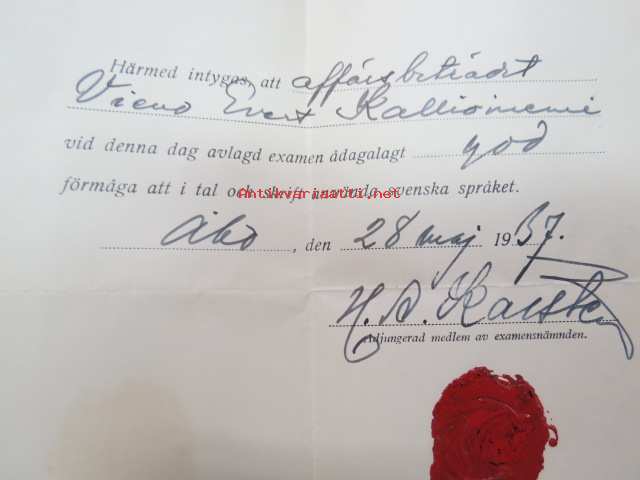 Härmed intygas, att affärsbiträdet
Vieno Evert Kallioniemi
vid denna dag avlagd examen ådagalagt god
förmåga att i tal och skrift använda svenska språket.
Antikvariaatti.net
Åbo, den 28 maj 1937.
H. A. Karsten
Adjungerad medlem av examensnämnden.